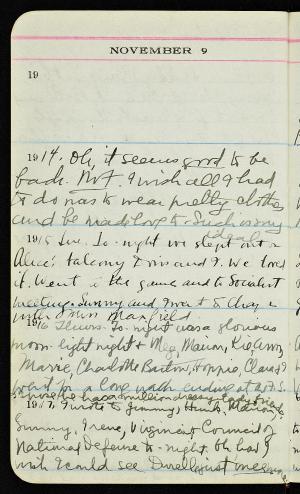 NOVEMBER 9
19
1914. Oh, it seems good to be
back. Not. I wish all I had
to do was to wear pretty clothes
and be made love to. Such is my
ideal.
1915 Tues. To-night we slept out on
Alice's balcony Doris and I. We loved
it. Went to the game and to Socialist
meeting. Sunny and I went to
with John Masefield.
1916 Thurs. To-night was a glorious
moon-light night & Meg, Marion,
Marie, Charlotte Barton, Hoppie, Claus & I
went for a long walk ending at
a million
1917. I wrote to Jimmy, Hunt, Marion,
Sunny, Irene, Virginia Council of
National Defense to-night. Oh how I
wish I could see Dwelly just